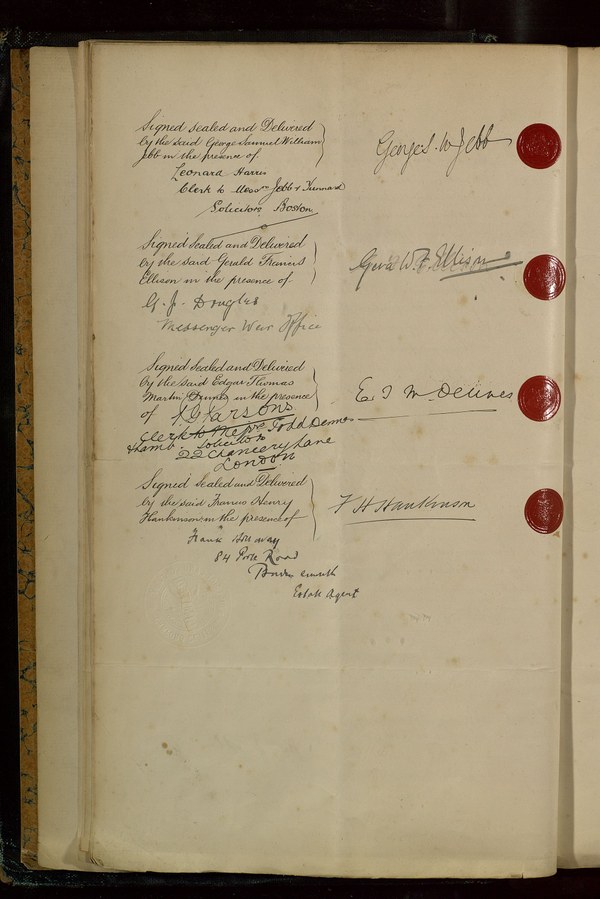 Signed Sealed and Delivered
by the said George Samuel William
Jebb in the presence of
George S. W Jebb
Leonard Harris
Clerk to Messrs Jebb &
Solicitors Boston
Signed Sealed and Delivered
by the said Gerald Francis
Ellison in the presence of
Ellison
G. J. Douglas
Messenger War Office
Signed Sealed and Delivered
by the said Edgar Thomas
Martin Dennes in the presence
of
E T M Dennes
Clerk to Messrs Todd Dennes
& Lamb Solicitors
22 Chancery Lane
London
Signed Sealed and Delivered
by the said Francis Henry
Hankinson in the presence of
F H Hankinson
Frank
84 Poole Road
Bournemouth
Estate Agent